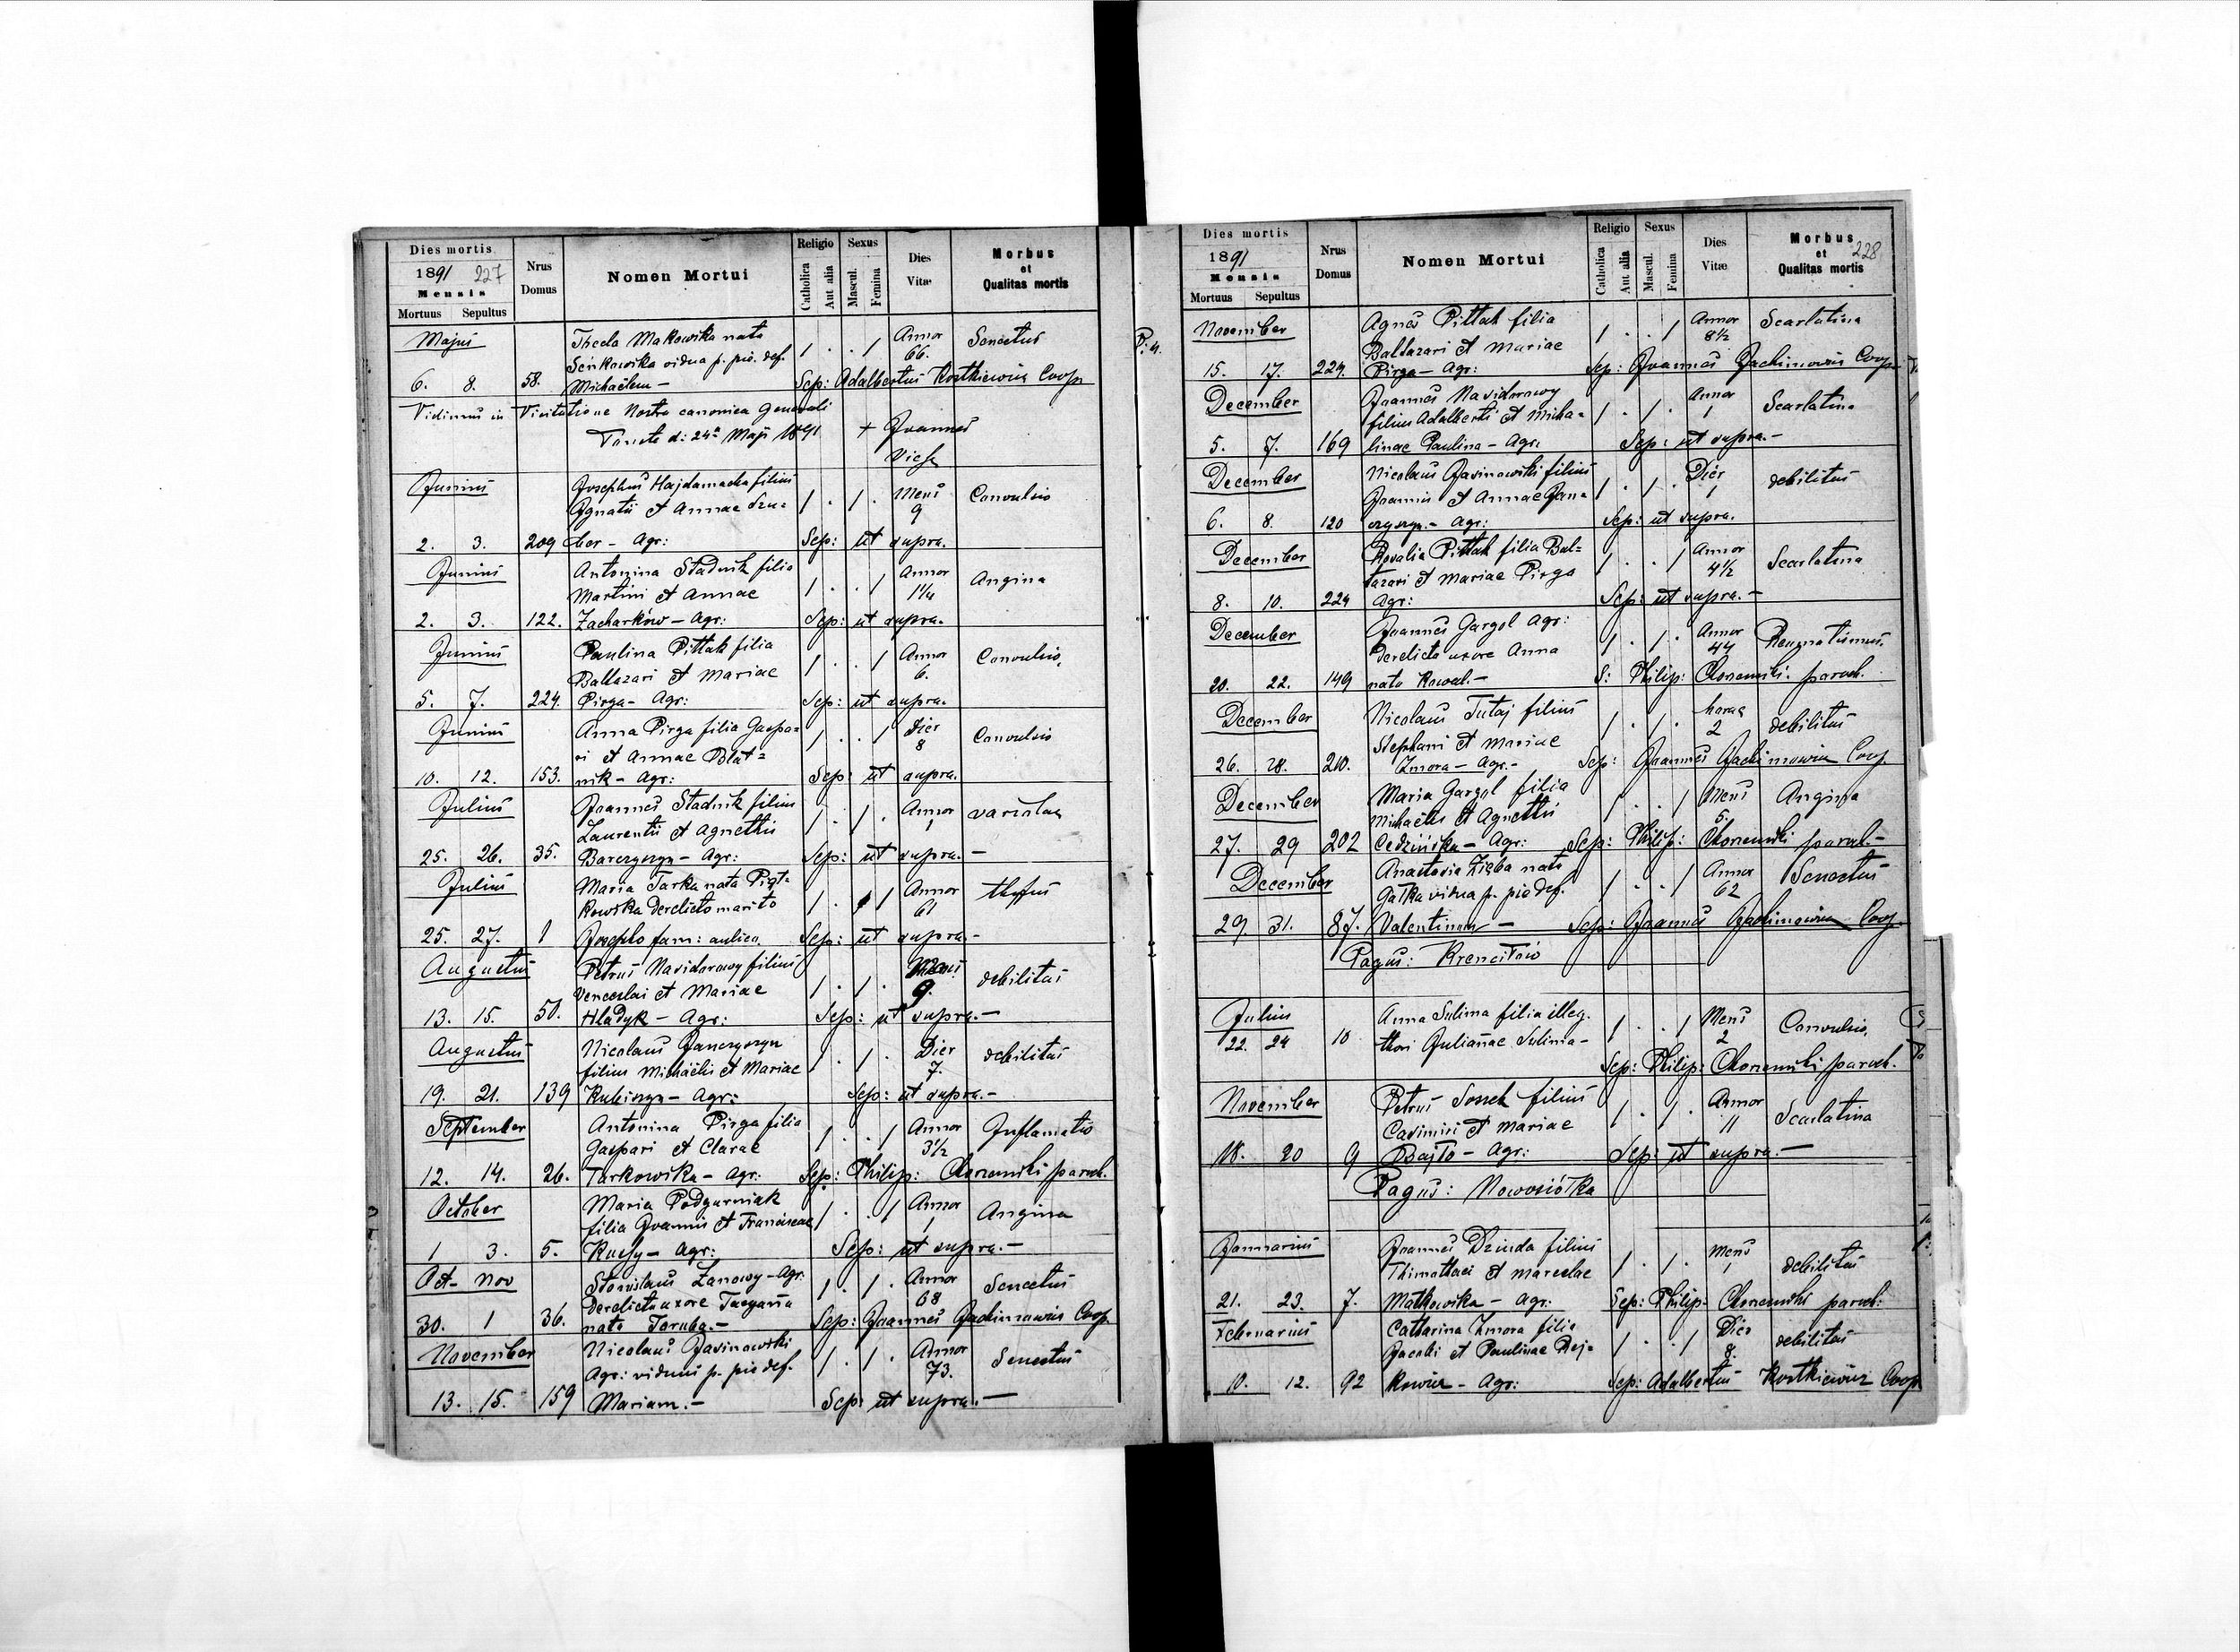 Dies mortis
1891 227
Mensis
Mortuus Sepultus
Nrus Domus
Nomen Mortui
Religio
Catholica
Aut alia
Sexus
Mascul.
Femina
Dies Vitæ
Morbus et Qualitas mortis
Majus Thecla Makowska nata 1 . . 1 Annor 66. Senectus
Seńkowska vidua p. pie. def.
6. 8. 58. Michaëlem — Sep: Adalbertus Kostkiewicz Coop
Vidimus in Visitatione Nostra canonica generali
Touste d: 24ª Maji 1891 + Joannes
Junius Josephus Hajdamacha filius 1 . 1 . Mens 9 Convulsio
Ignatii et Annae Szu=
2. 3. 209 ber - Agr: Sep: ut supra.
Junius Antonina Stadnik filia 1 . . 1 Annor 1¼ Angina
Martini et Annae
2. 3. 122. Zacharków - Agr: Sep: ut supra.
Junius Paulina Pittak filia 1 . . 1 Annor 6. Convulsio.
Baltazari et Mariae
5. 7. 224. Pirga - Agr: Sep: ut supra.
Junius Anna Pirga filia Gaspa= 1 . . 1 Dier 8 Convulsio
ri et Annae Błat=
10. 12. 153. nik - Agr: Sep: ut supra.
Julius Joannes Stadnik filius 1 . 1 . Annor 1 variolae
Laurentii et Agnethis
25. 26. 35. Barczyszyn - Agr: Sep: ut supra. —
Julius Maria Tarka nata Piąt= 1 . 1 Annor 61 thyfus
kowska derelicto marito
25. 27. 1 Josepho fam: aulico. Sep: ut supra. —
Augustus Petrus Nasidorowy filius 1 . 1 . Mens 9. debilitas
Venceslai et Mariae
13. 15. 50. Hladyk - Agr: Sep: ut supra. —
Augustus Nicolaus Janczyszyn 1 . 1 . Dier 7. debilitas
filius Michaëli et Mariae
19. 21. 139 Kubiszyn - Agr: Sep: ut supra. —
September Antonina Pirga filia 1 . . 1 Annor 3½ Inflamatio
Gaspari et Clarae
12. 14. 26. Tarkowska - Agr: Sep: Philip: Chorzemski paroch.
October Maria Podgurniak 1 . . 1 Annor 1 Angina
filia Joannis et Franciscae
1 3. 5. Agr: Sep: ut supra. —
Oct- Nov Stanislaus Zanowy - Agr. 1 . 1 . Annor 68 Senectus
derelicta uxore Tacyanna
30. 1 36. nata Taruba. — Sep: Joannes Jachimowicz Coop
November Nicolaus Jasinowski 1 . 1 . Annor 73. Senectus
Agr: viduus p. pie def.
13. 15. 159 Mariam. — Sep: ut supra. —
Dies mortis
1891
Mensis
Mortuus Sepultus
Nrus Domus
Nomen Mortui
Religio
Catholica
Aut alia
Sexus
Mascul.
Femina
Dies Vitæ
Morbus et Qualitas mortis
228
November Agnes Pittak filia 1 . . 1 Annor 8½ Scarlatina
Baltazari et Mariae
15. 17. 224. Pirga - Agr: Sep: Joannes Jachimowicz Coop.
December Joannes Nasidorowy 1 . 1 . Annor 1 Scarlatina
filius Adalberti et Micha=
5. 7. 169 linae Paulina - Agr: Sep: ut supra. —
December Nicolaus Jasinowski filius 1 . 1 . Dier 1 debilitas
Joannis et Annae Jan=
6. 8. 120 czyszyn. - Agr: Sep: ut supra.
December Rosalia Pittak filia Bal= 1 . . 1 Annor 4½ Scarlatina
tazari et Mariae Pirga
8. 10. 224 Agr: Sep: ut supra. —
December Joannes Gargol Agr: 1 . 1 . Annor 44 Reumatismus.
derelicta uxore Anna
20. 22. 149 nata Kowal. — S: Philip: Chorzemski. paroch.
December Nicolaus Tutaj filius 1 . 1 . horas 2 debilitas
Stephani et Mariae
26. 28. 210. Zmora - Agr. - Sep: Joannes Jachimowicz Coop
December Maria Gargol filia 1 . . 1 Mens 5. Angina
Michaëlis et Agnethis
27. 29 202 Cedzińska - Agr: Sep: Philip: Chorzemski paroch. -
December Anastasia Zięba nata 1 . . 1 Annor 62 Senectus
Gałka vidua p. pie def.
29. 31. 87. Valentinum — Sep: Joannes Jachimowicz Coop
Pagus: Krencitów
Julius Anna Sulima filia illeg. 1 . . 1 Mens 2 Convulsio.
22. 24 10 thori Julianae Sulima -
Sep: Philip: Chorzemski paroch.
November Petrus Sossek filius 1 . 1 . Annor 11 Scarlatina
Casimiri et Mariae
18. 20 9 Bajło - Agr: Sep: ut supra. —
Pagus: Nowosiółka
Januarius Joannes Dziuda filius 1 . 1 . Mens 1 debilitas
Thimothaei et Marcelae
21. 23. 7. Małkowska - Agr: Sep: Philip. Chorzemski paroch:
Februarius Catharina Zmora filia 1 . . 1 Dier 8. debilitas
Jacobi et Paulinae Rej=
10. 12. 92 kowicz - Agr: Sep: Adalbertus Kostkiewicz Coop